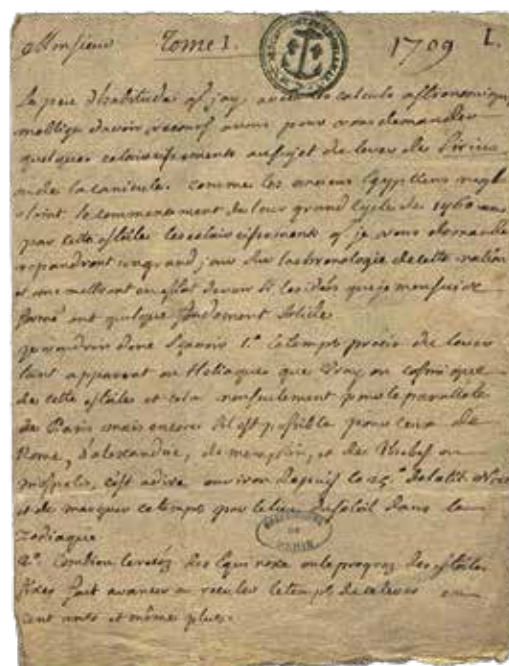 Monsieur Tome 1. 1709 1.
La peu d'habitude q j'ay avec les calculs astronomique
m'oblige d'avoir recours a vous pour vous demander
quelques eclaircissements au sujet du lever de Sirius
ou de la canicule. comme les anciens Egyptiens regl
oient le commencement de leur grand Cycle de 1460 ans
par cette estoile les eclaircissements q je vous demande
repandront un grand jour sur la chronologie de cette nation
et me mettront en estat de voir si les idées que je m'en suis
formé ont quelque fondement solide
je voudrois donc sçavoir 1.º le temps precis du lever
tant apparent ou Heliaque que vray ou cosmique
de cette estoile et cela non seulement pour le parallele
de Paris mais encore s'il est possible pour ceux de
Rome, d'alexandrie, de memphis, et de Thebes ou
c'est a dire environ depuis le 25.º de latit
et de marquer ce temps par le lieu du soleil dans le
Zodiaque
2º. Combien la des Equinoxe ou le progrez des estoiles
fixes fait avancer ou reculer le temps de ce lever en
cent ants et même plus.
OBSERVATOIRE
DE
PARIS